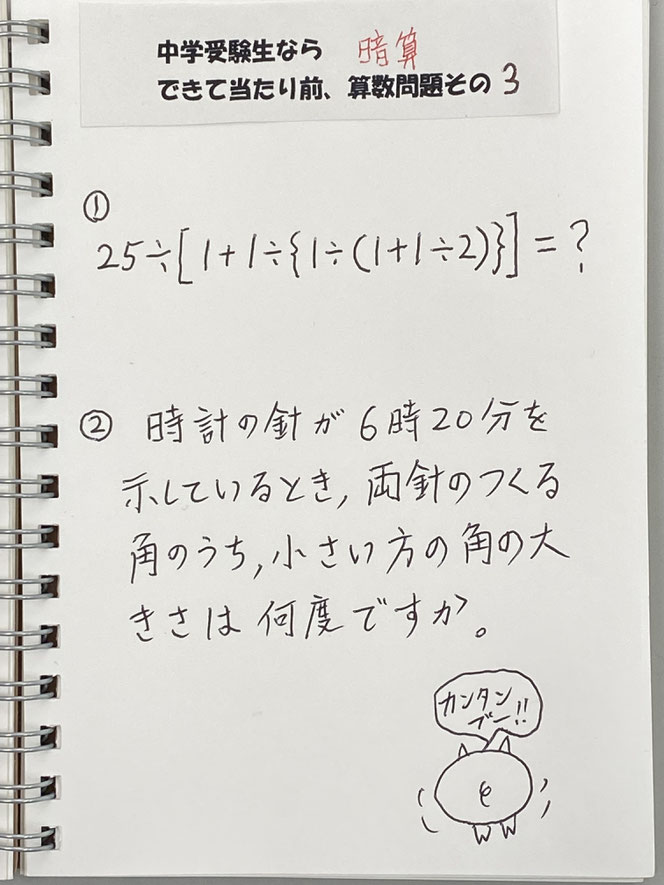 中学受験生なら 暗算
できて当たり前、算数問題その 3
①
25÷[1+1÷{1÷(1+1÷2)}]=?
② 時計の針が6時20分を
示しているとき,両針のつくる
角のうち,小さい方の角の大
きさは何度ですか。
カンタン
でー!!